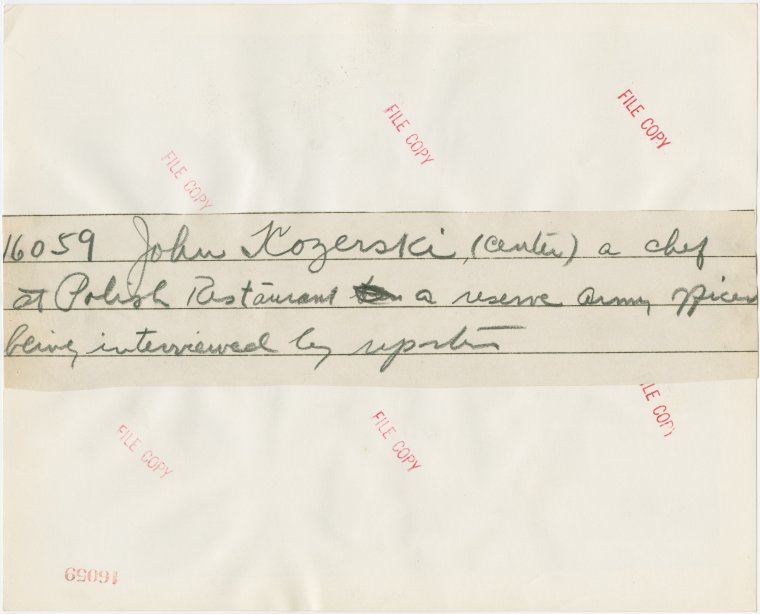 FILE COPY
FILE COPY
FILE COPY
16059 John Kozerski (center) a chef
at Polish Restaurant a reserve army officer
being interviewed by reporters
FILE COPY
FILE COPY
FILE COPY
16059